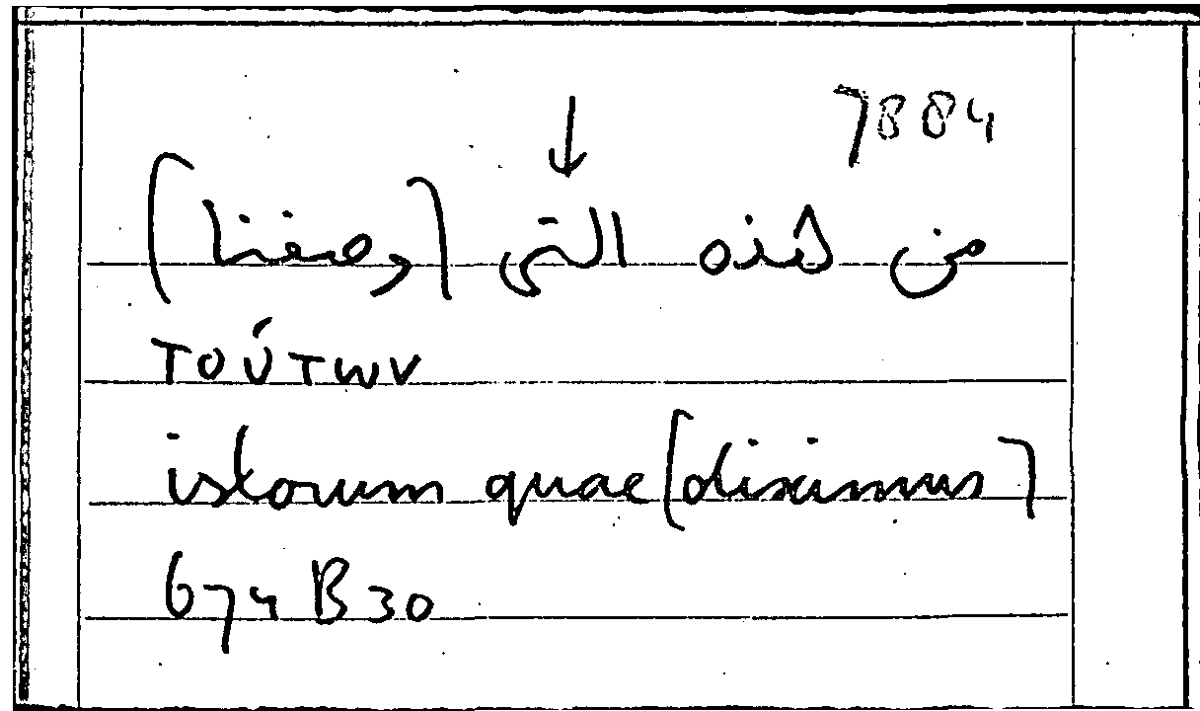 7884
↓
من هذه التى [وصفنا]
τούτων
istorum quae [diximus]
674 B 30